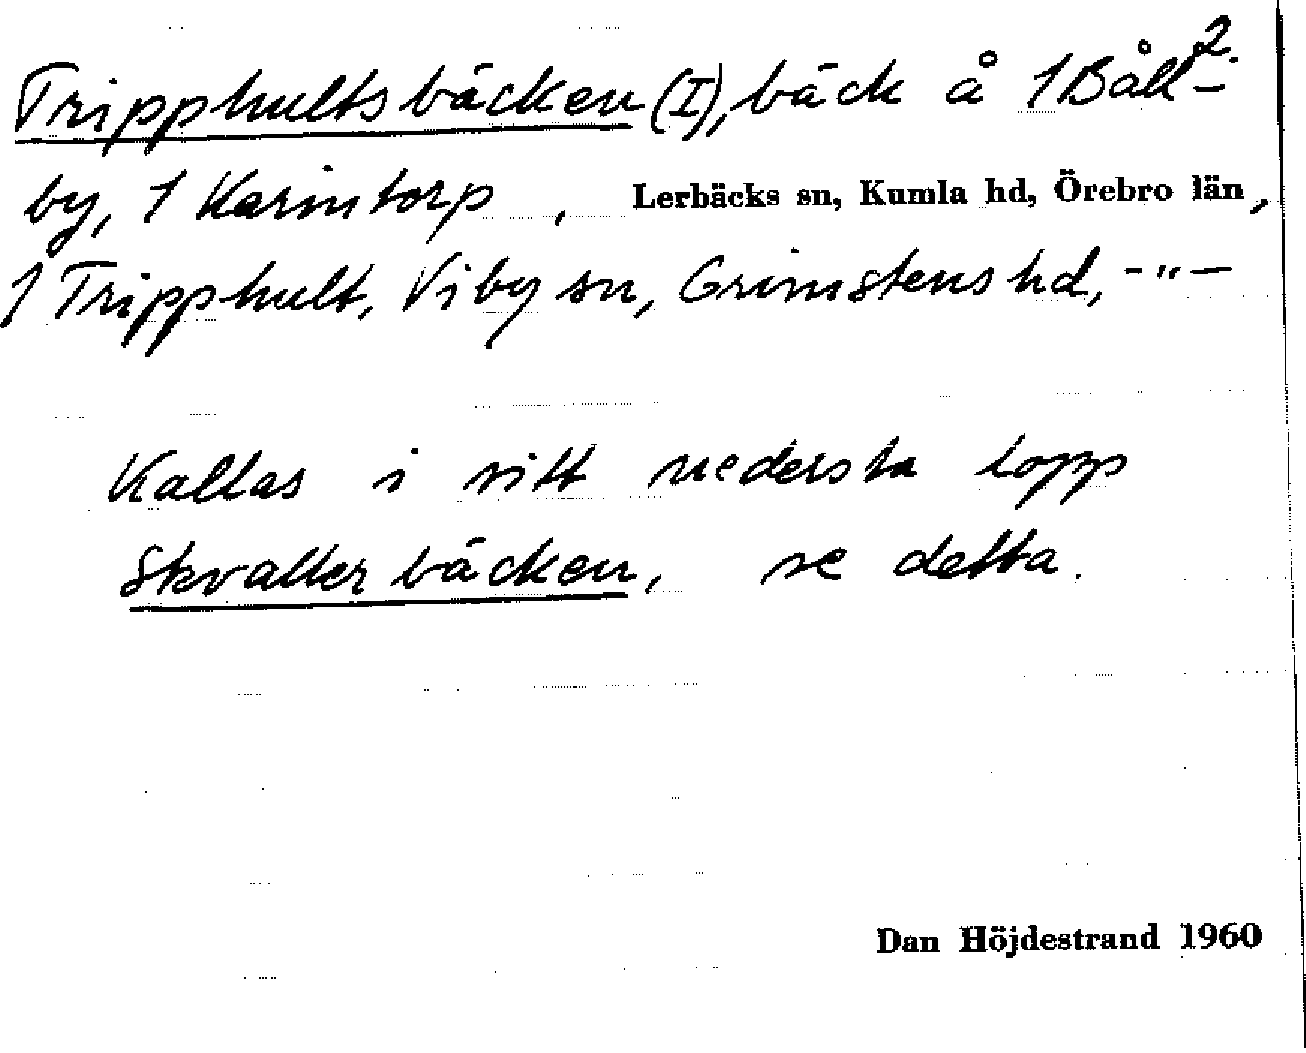 2.
Tripphultsbäcken (I), bäck å 1 Båll-
by, 1 Karintorp, Lerbäcks sn, Kumla hd, Örebro län,
1 Tripphult, Viby sn, Grimstens hd, -"-
Kallas i sitt nedersta lopp
Skvallerbäcken, se detta.
Dan Höjdestrand 1960